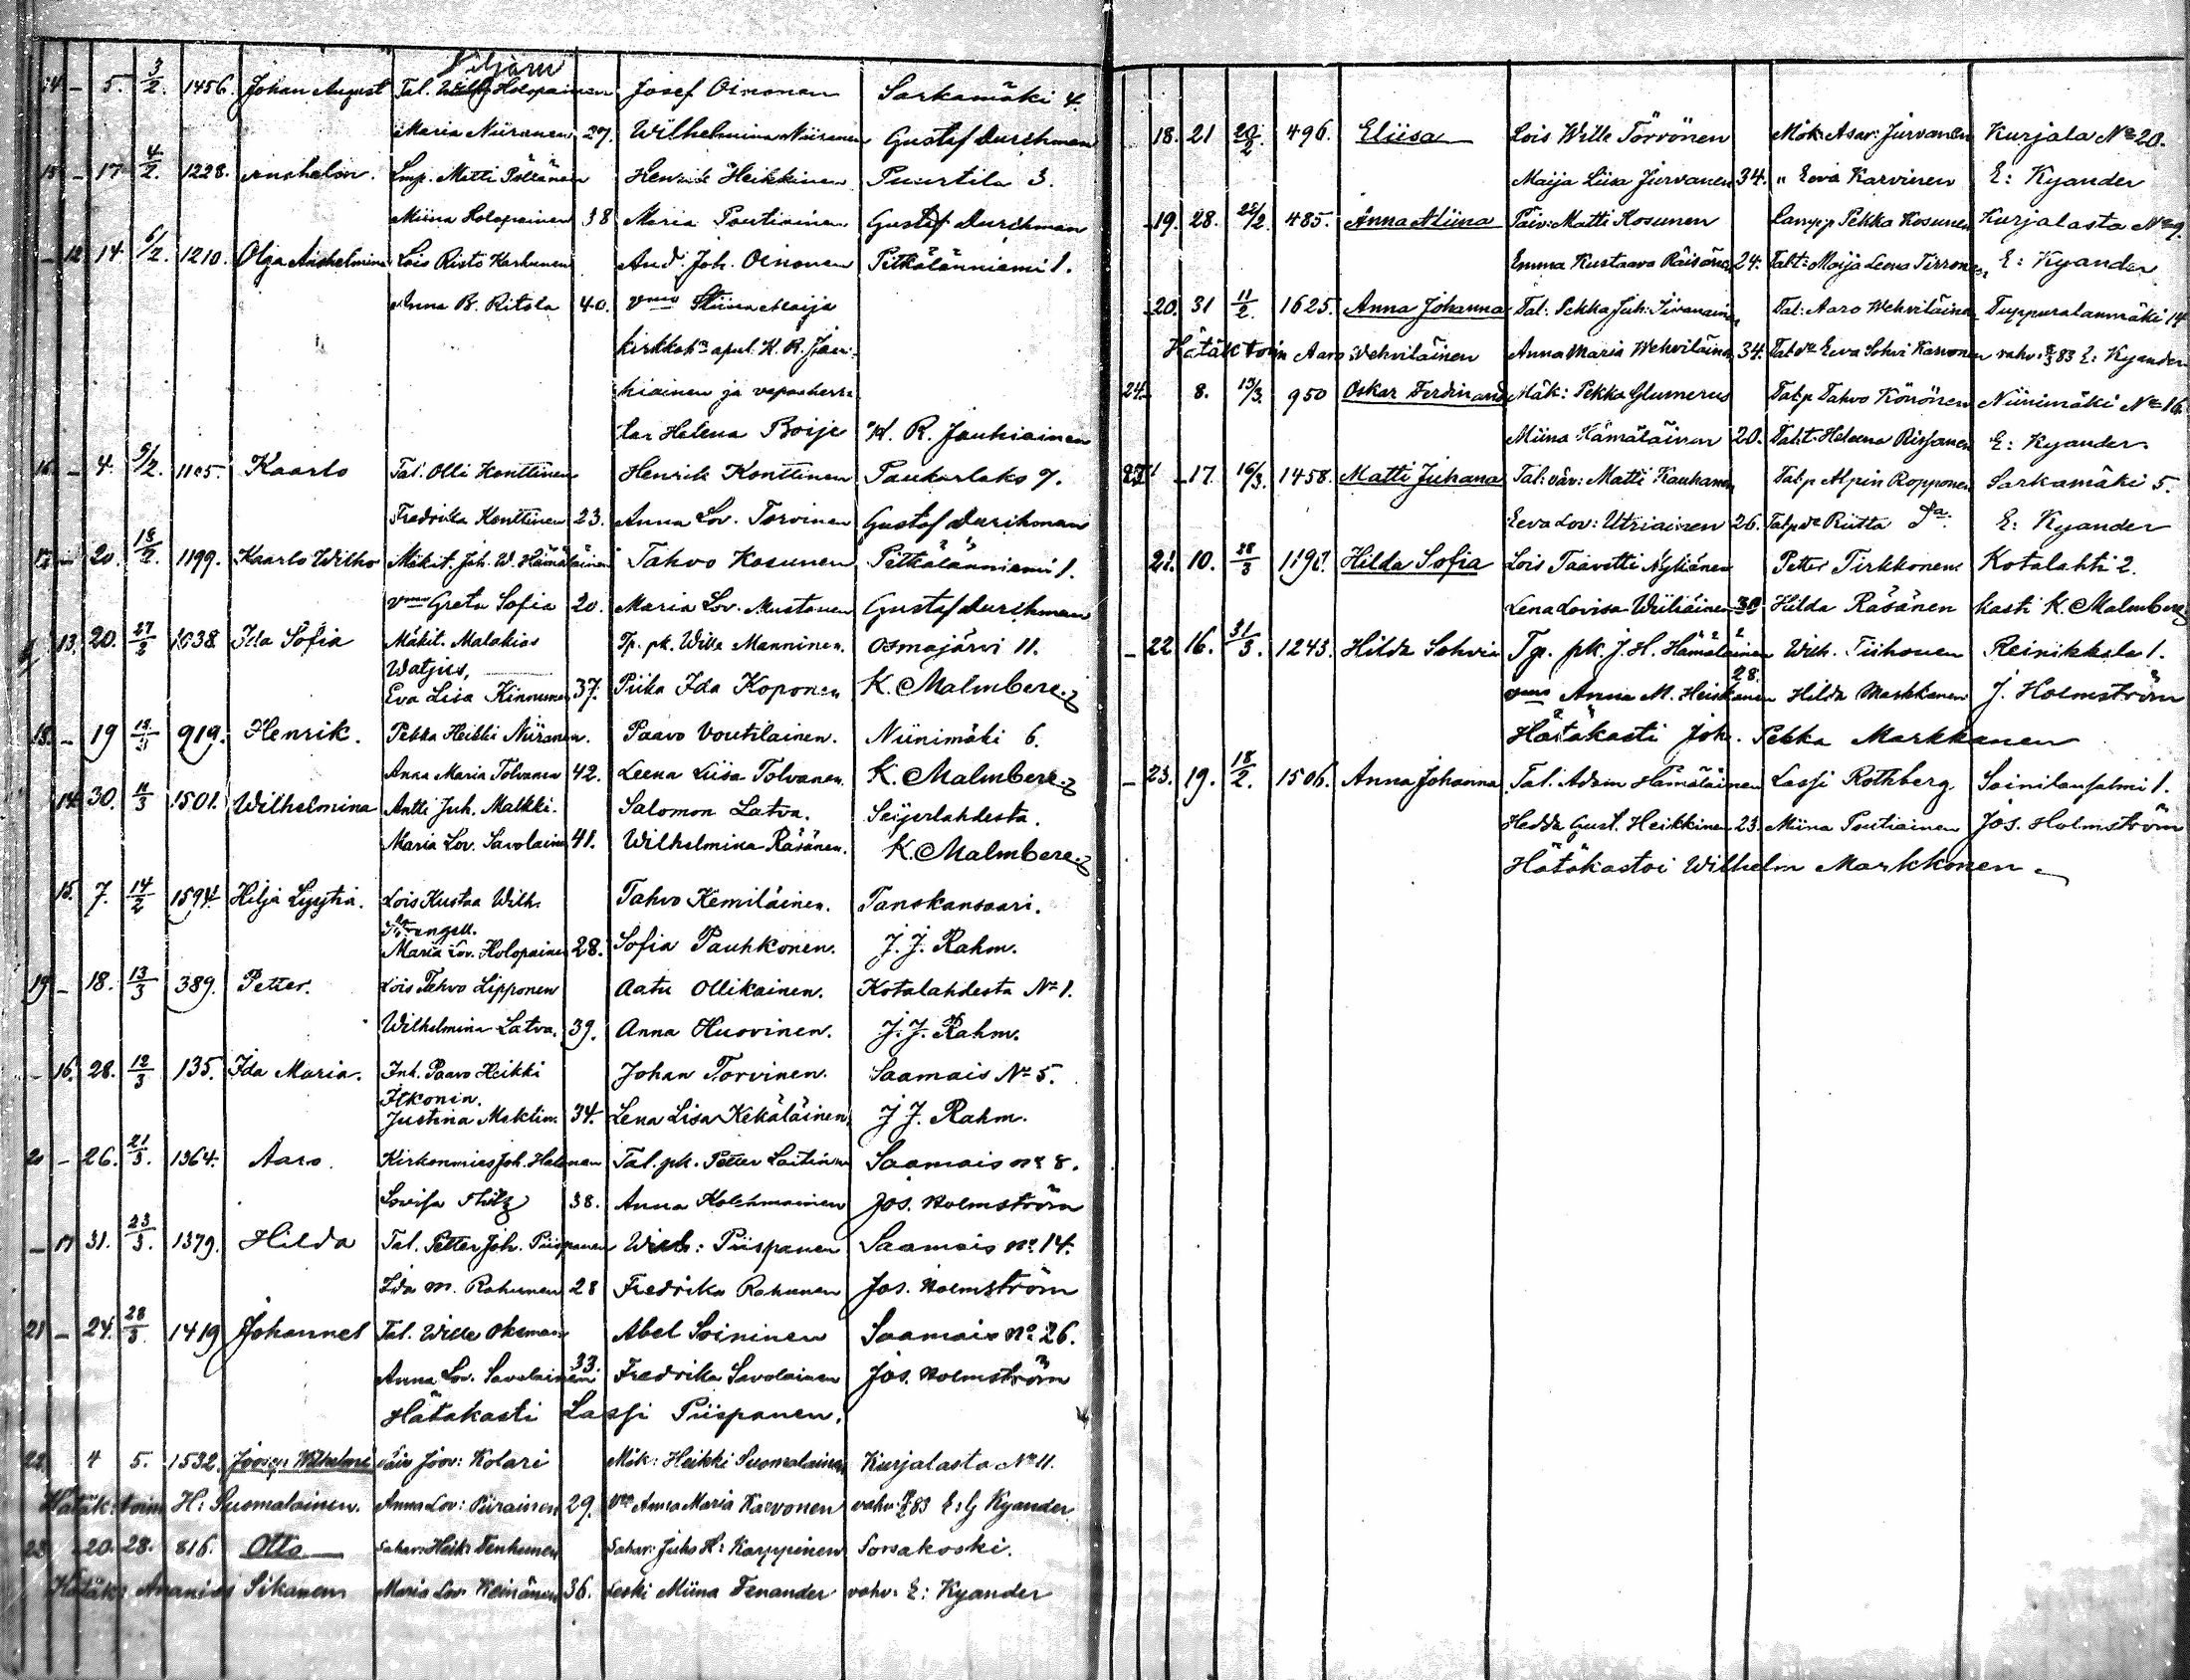 Viljam
14 - 5. 3/2. 1456. Johan August Tal. Holopainen Josef Oinonen Sarkamäki 4.
Maria Niiranen 27. Wilhelmina Niiranen Gustaf Durchman
15 - 17 4/2. 1228. Anshelm. Lmp. Matti Pöllänen Henrik Heikkinen Puurtila 3.
Miina Holopainen 38 Maria Poutiainen Gustaf Durchman
- 12 14 6/2. 1210. Olga Anshelmina Lois Risto Karhunen And. Joh. Oinonen Pitkälänniemi 1.
Anna B. Ritola 40. vmo Stiina Maija
kirkkoh:n apul. K. R. Jau-
hiainen ja vapaaherra-
tar Helena Boije K. R. Jauhiainen
16 - 4. 5/2. 1105. Kaarlo Tal. Olli Konttinen Henrik Konttinen Paukarlaks 7.
Fredrika Konttinen 23. Anna Lov. Torvinen Gustaf Durchman
17 - 20. 18/2. 1199. Kaarlo Wilho Mäkit. Joh. W. Hämäläinen Tahvo Kosunen Pitkälänniemi 1.
vmo Greta Sofia 20. Maria Lov. Mustonen Gustaf Durchman
13. 20. 27/2 1038 Ida Sofia Mäkit. Malakias Tp. pk. Wille Manninen. Osmajärvi 11.
Watjus,
Eva Lisa Kinnunen 37. Piika Ida Koponen K. Malmberg
18. - 19 13/3 919. Henrik. Pekka Heikki Niiranen. Paavo Voutilainen. Niinimäki 6.
Anna Maria Tolvanen 42. Leena Liisa Tolvanen. K. Malmberg
14. 30. 11/3 1501. Wilhelmina Antti Juh. Malkki. Salomon Latva. Seijerlahdesta.
Maria Lov. Savolainen 41. Wilhelmina Räsänen. K. Malmberg
15. 7. 14/2 1594. Hilja Lyytia. Lois Kustaa Wilh. Tahvo Kemiläinen. Tanskansaari.
Maria Lov. Holopainen 28. Sofia Pauhkonen. J. J. Rahm.
19 - 18. 13/3 389. Petter. Lois Tahvo Lipponen Aatu Ollikainen. Kotalahdesta No 1.
Wilhelmina Latva. 39. Anna Huovinen. J. J. Rahm.
- 16. 28. 12/3 135. Ida Maria. Inh. Paavo Heikki Johan Torvinen. Saamais No 5.
Itkonin.
Justina Moktin. 34. Lena Lisa Kekäläinen J J. Rahm.
20 - 26. 21/3. 1364. Aaro. Kirkonmies Joh. Halonen Tal. pk. Petter Laitinen Saamais No 8.
Lovisa 38. Anna Kolehmainen Jos. Holmström
- 17 31. 23/3. 1379. Hilda Tal. Petter Joh. Piispanen Wilh: Piispanen Saamais No. 14.
Ida M. Rahunen 28 Fredrika Rahunen Jos. Holmström
21 - 24. 28/3. 1419 Johannes Tal. Wille Oksman Abel Soininen Saamais No 26.
Anna Lov. Savolainen 33. Fredrika Savolainen Jos. Holmström
Hätäkasti Lassi Piispanen.
22. 4 5. 1532. Joosep Wilhelmi Päiv Joov: Kolari Mäk: Heikki Suomalainen Kurjalasta No 11.
Hätäk: toim H: Suomalainen. Anna Lov: Piirainen 29. vmo Anna Maria Karvonen vahv: 83 E: G Kyander
23 20. 28. 816. Otto Sahar: Heik: Tenhunen Sahar: Juho H: Karppinen Sorsakoski.
Hätäk: Ananias Sikanen Maria Lov: Keinänen 36. Leski Miina Fenander vahv: E: Kyander
18. 21 20/2 496. Eliisa Lois Wille Törrönen Mök: Asar: Jurvanen Kurjala No 20.
Maija Liisa Jurvanen 34. " Eeva Karvinen E: Kyander
19. 28. 25/2 485. Anna Miina Päiv: Matti Kosunen Lampp Pekka Kosunen Kurjalasta No 9.
Emma Kustaava Räisänen 24. Talt: Maija Leena Tirronen E: Kyander
20. 31 11/2. 1625. Anna Johanna Tal: Pekka Juh: Tirranainen Tal: Aaro Wehviläinen Tuppuralanmäki 14
Hätäk toim Aaro Wehviläinen Anna Maria Wehviläinen 34. Tal:va Eeva Sohvi Karvonen vahv: 83 E: Kyander
24. 8. 13/3. 950 Oskar Ferdinand Mäk: Pekka Glumerus Tal:p Tahvo Könönen Niinimäki No 16.
Miina Hämäläinen 20. Tal:t Heleena Rissanen E: Kyander.
17. 16/3. 1458. Matti Juhana Tal: väv: Matti Kauhanen Tal:p Alpin Ropponen Sarkamäki 5.
Eeva Lov: Utriainen 26. Talp va Riitta Da E: Kyander
21. 10. 28/3 1190. Hilda Sofia Lois Taavetti Nykänen Petter Tirkkonen Kotalahti 2.
Lena Lovisa Wiiliäinen 30 Hilda Räsänen kasti K. Malmberg
- 22 16. 31/3. 1243. Hilda Sohvia Tp. pk. J. H. Hämäläinen Wilh. Tiihonen Reinikkala 1.
vmo Anna M. Heiskanen 28. Hilda Markkanen J. Holmström
Hätäkasti Joh. Pekka Markkanen
- 23. 19. 18/2. 1506. Anna Johanna Tal. Adam Hämäläinen Lassi Rothberg Soinilansalmi 1.
Hedda Gust. Heikkinen 23. Miina Poutiainen Jos. Holmström
Hätäkastoi Wilhelm Markkonen